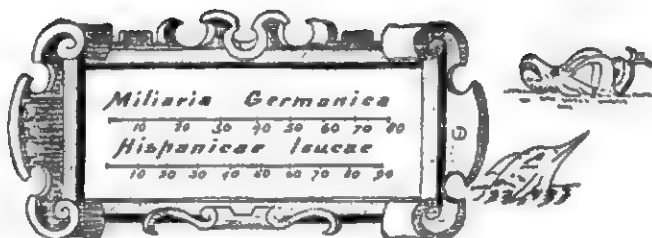 Miliaria Germanica
10 20 30 40 50 60 70 80
Hispanicae leucae
10 20 30 40 50 60 70 80 90